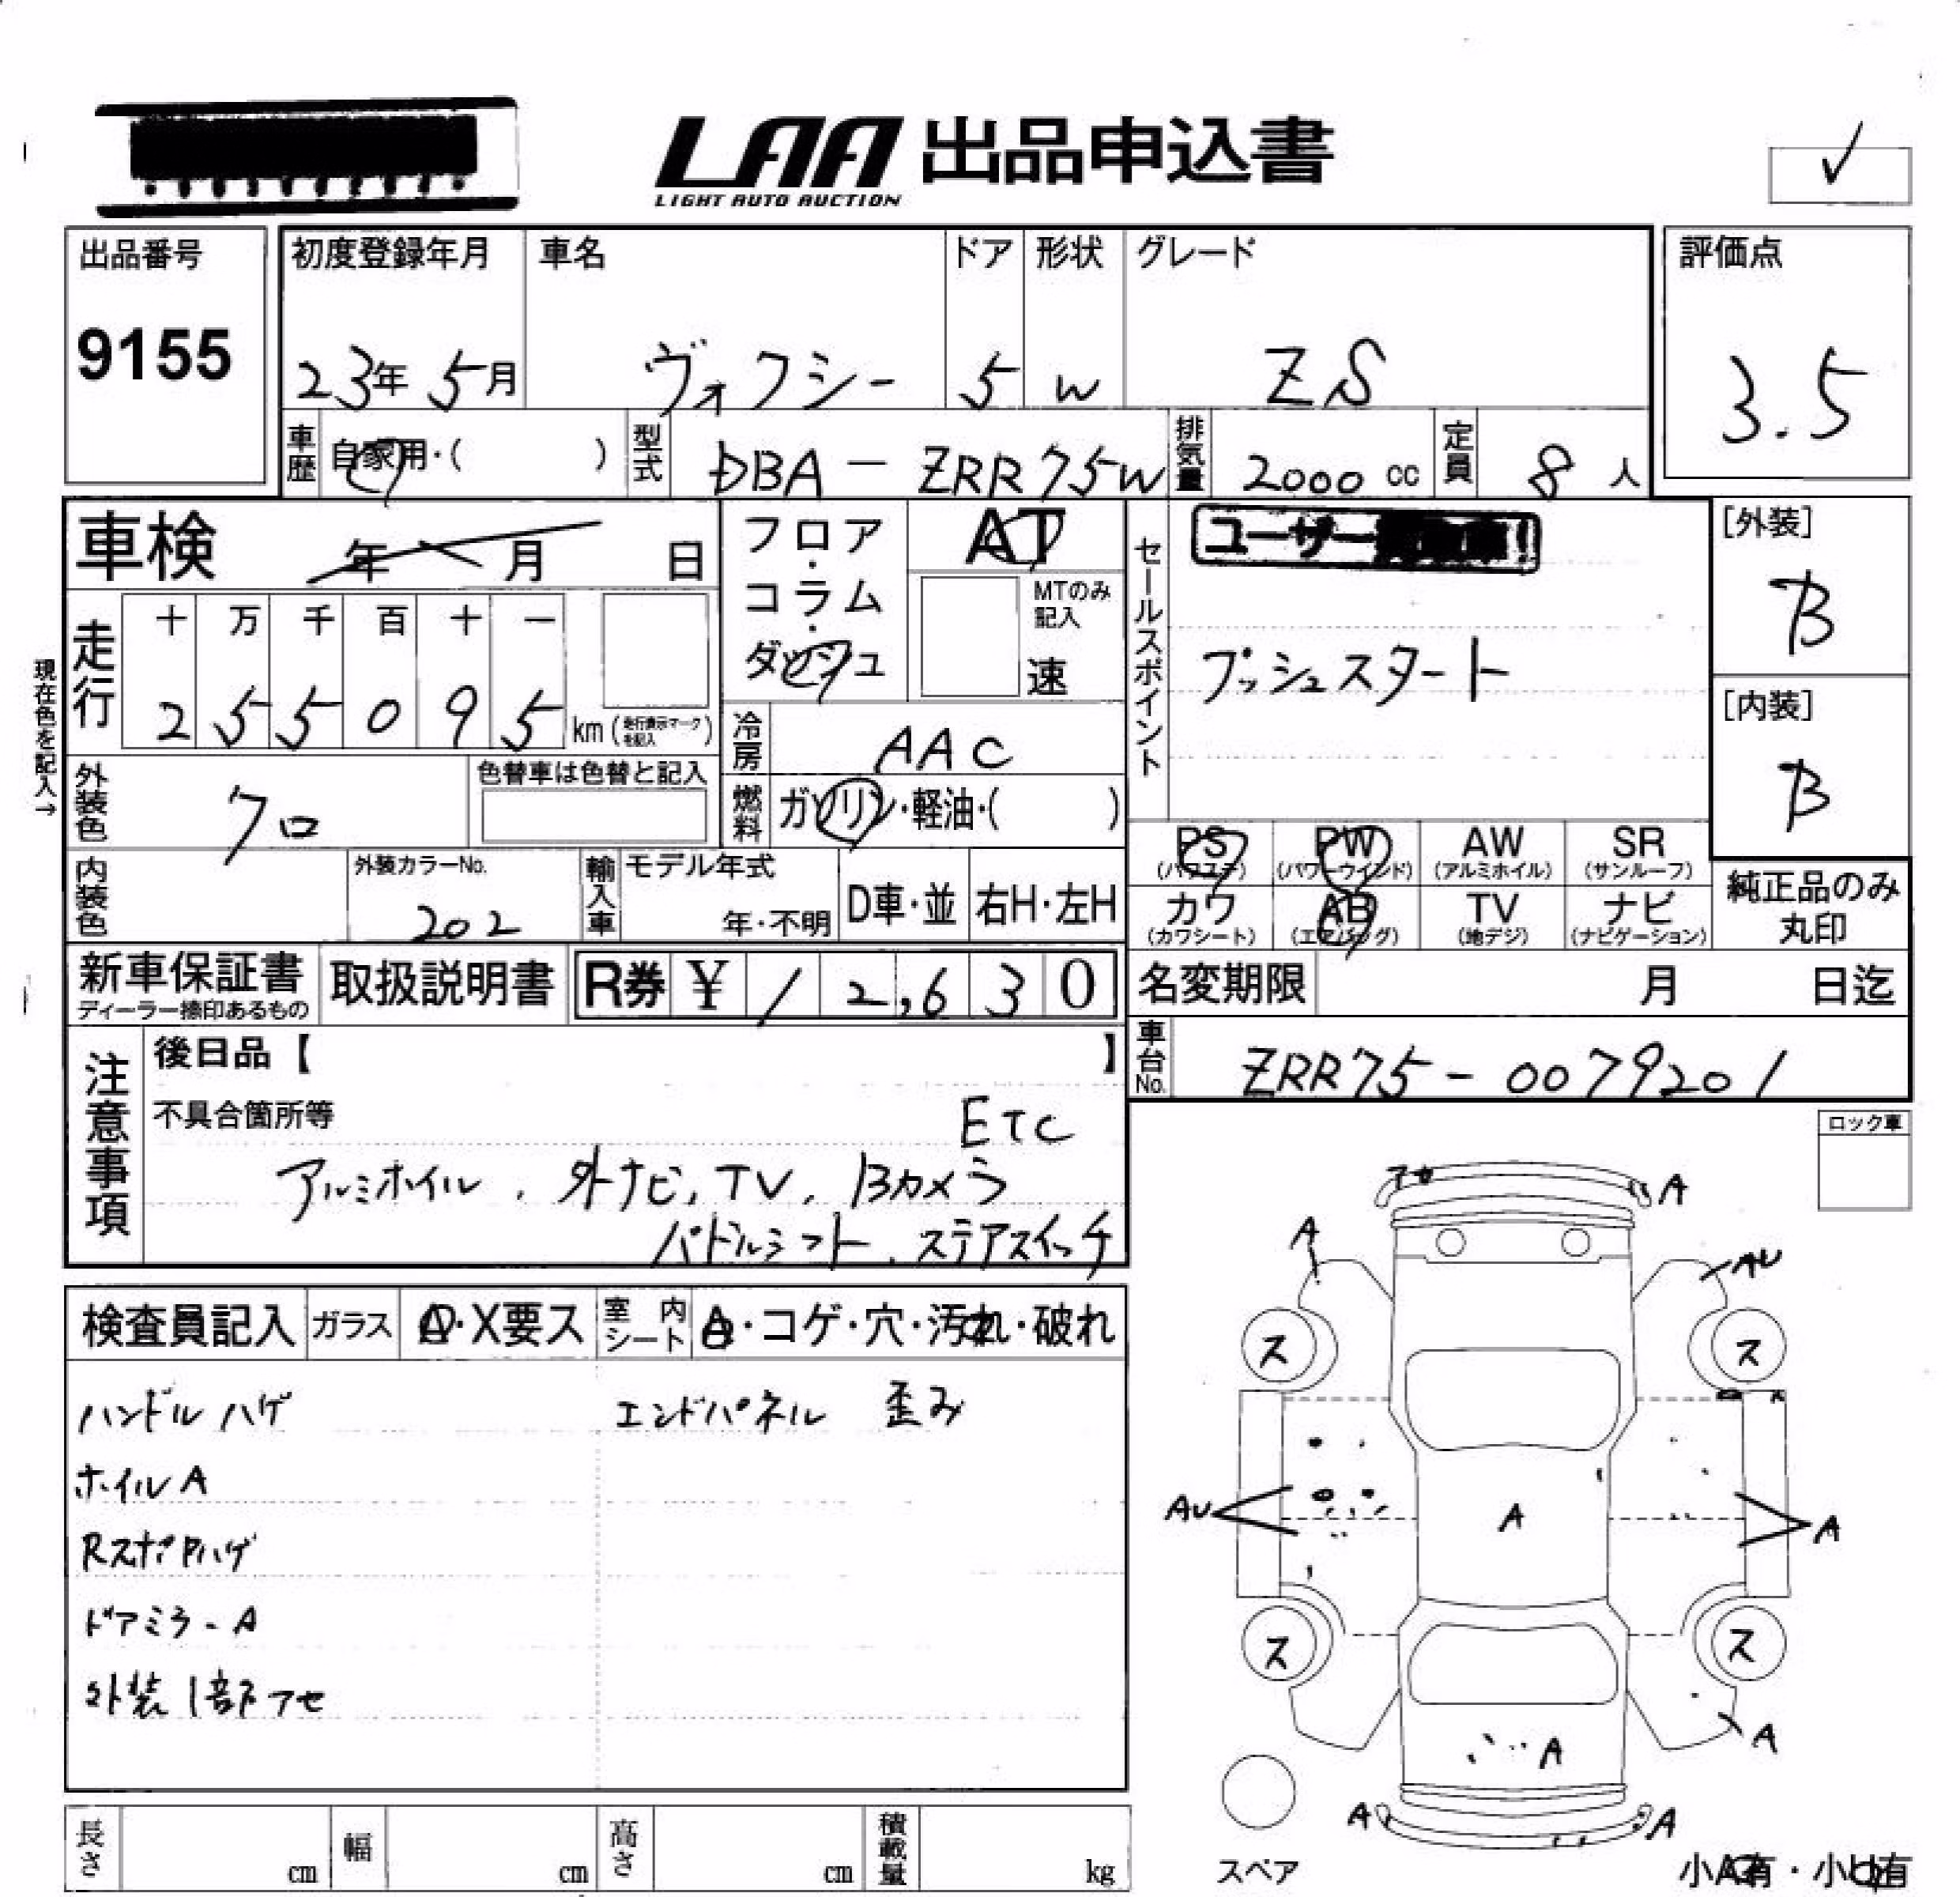 LAA 出品申込書
LIGHT AUTO AUCTION
✓
出品番号
9155
初度登録年月
23年 5月
車名
ヴォクシー
ドア
5
形状
W
グレード
ZS
評価点
3.5
車歴
自家用・( )
型式
DBA - ZRR75W
排気量
2000 cc
定員
8 人
車検 年 月 日
フロア・コラム・ダッシュ
AT
MTのみ記入
速
セールスポイント
ユーザー
プッシュスタート
[外装]
B
[内装]
B
現在色を記入→
走行
十 万 千 百 十 一
2 5 5 0 9 5 km (走行表示マークを記入)
冷房
AAC
外装色
クロ
色替車は色替と記入
燃料
ガソリン・軽油・( )
内装色
外装カラーNo.
202
輸入車
モデル年式
年・不明
D車・並
右H・左H
PS (パワステ)
PW (パワーウインド)
AW (アルミホイル)
SR (サンルーフ)
カワ (カワシート)
AB (エアバッグ)
TV (地デジ)
ナビ (ナビゲーション)
純正品のみ丸印
新車保証書
ディーラー捺印あるもの
取扱説明書
R券 ¥ 12,630
名変期限 月 日迄
車台No.
ZRR75-0079201
注意事項
後日品【 】
不具合箇所等
ETC
アルミホイル、外ナビ、TV、Bカメラ
パドルシフト、ステアスイッチ
ロック車
検査員記入
ガラス
A・X要ス
室内シート
A・コゲ・穴・汚れ・破れ
ハンドルハゲ
エンドパネル 歪み
ホイルA
RスポPハゲ
ドアミラーA
外装1部アセ
アセ
A
A
AU
ス
ス
AU
A
A
ス
ス
A
A
A
A
スペア
小A有・小U有
長さ cm
幅 cm
高さ cm
積載量 kg